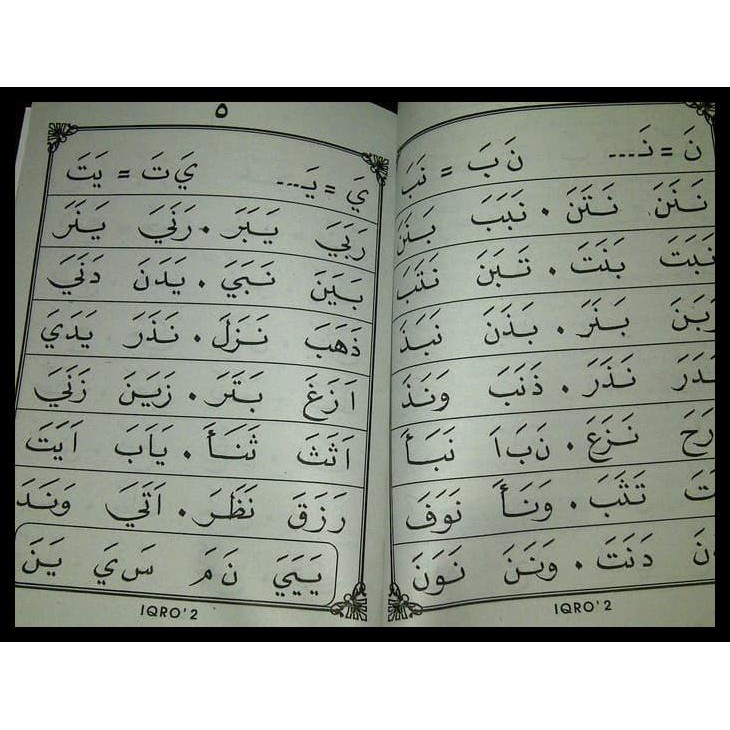 نَ = نَـ... نَ بَ = نَبَ
نَـنَنَ نَـتَنَ . نَبَبَ بَـنَنَ
نَبَتَ بَنَتَ . تَـبَنَ نَتَبَ
بَـنَرَ . بَذَنَ نَبَذَ
نَذَرَ . ذَنَبَ وَنَذَ
نَـزَعَ . نَبَ اَ نَبَـأَ
تَثَبَ . وَنَـأَ نَوَفَ
دَنَتَ . وَنَنَ نَـوَنَ
IQRO' 2
٥
يَ = يَـ... يَ تَ = يَتَ
رَبَيَ يَـبَرَ . رَنَيَ يَـنَرَ
بَـيَنَ نَـبَيَ . يَدَنَ دَنَيَ
ذَهَبَ نَـزَلَ . نَذَرَ يَدَيَ
اَزَغَ بَـتَرَ . زَيَنَ زَنَيَ
اَثَثَ ثَنَـأَ . يَابَ اَيَتَ
رَزَقَ نَظَرَ . اَتَيَ وَنَدَ
يَـيَيَ نَ مَ سَ يَ يَنَ
IQRO' 2